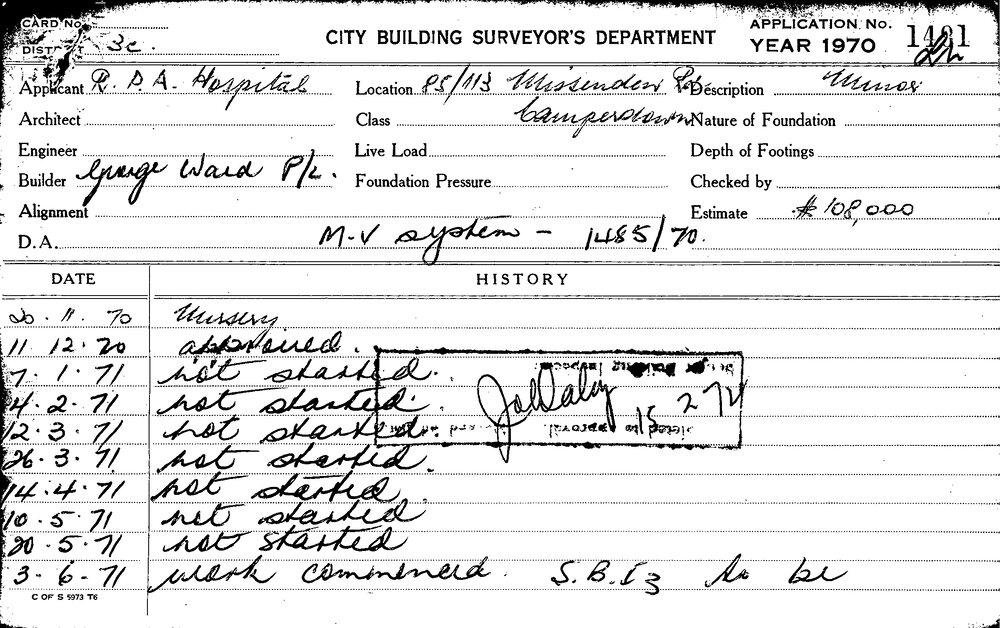 CARD No.
DISTRICT 3c.
CITY BUILDING SURVEYOR'S DEPARTMENT
APPLICATION No.
YEAR 1970
Applicant R. P. A. Hospital Location 85/113 Missenden Rd Description Minor
Architect Class Camperdown Nature of Foundation
Engineer Live Load Depth of Footings
Builder George Ward P/L. Foundation Pressure Checked by
Alignment Estimate $108,000
D.A. M.V system - 1485/70.
DATE HISTORY
20.11.70 Nursery
11.12.70 approved.
7.1.71 not started.
4.2.71 not started.
12.3.71 not started.
26.3.71 not started.
14.4.71 not started
10.5.71 not started
20.5.71 not started
3-6-71 work commenced. S.B.I3 to be
Building Inspec
15 2 72
to approval.
C OF S 5973 T6